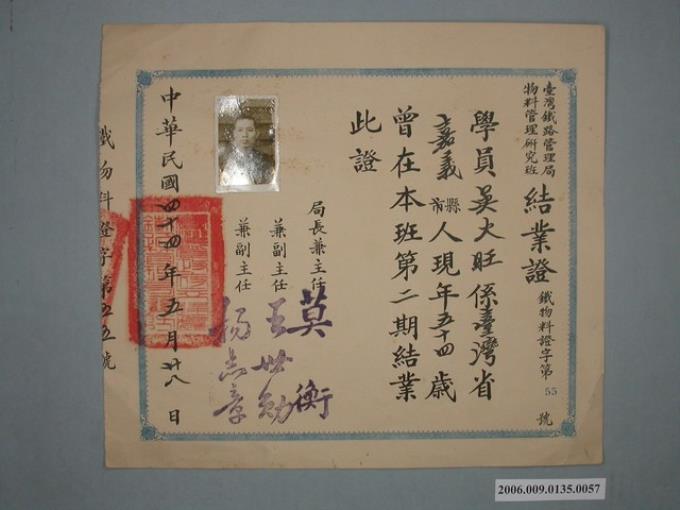 臺灣鐵路管理局
物料管理研究班
結業證
鐵物料證字第55號
學員吴火旺係臺灣省
嘉義縣市人現年五十四歲
曾在本班第二期結業
此證
局長兼主任 莫衡
兼副主任 王世勛
兼副主任 楊志章
中華民國四十四年五月廿八日
鐵物料證字第五五號
2006.009.0135.0057